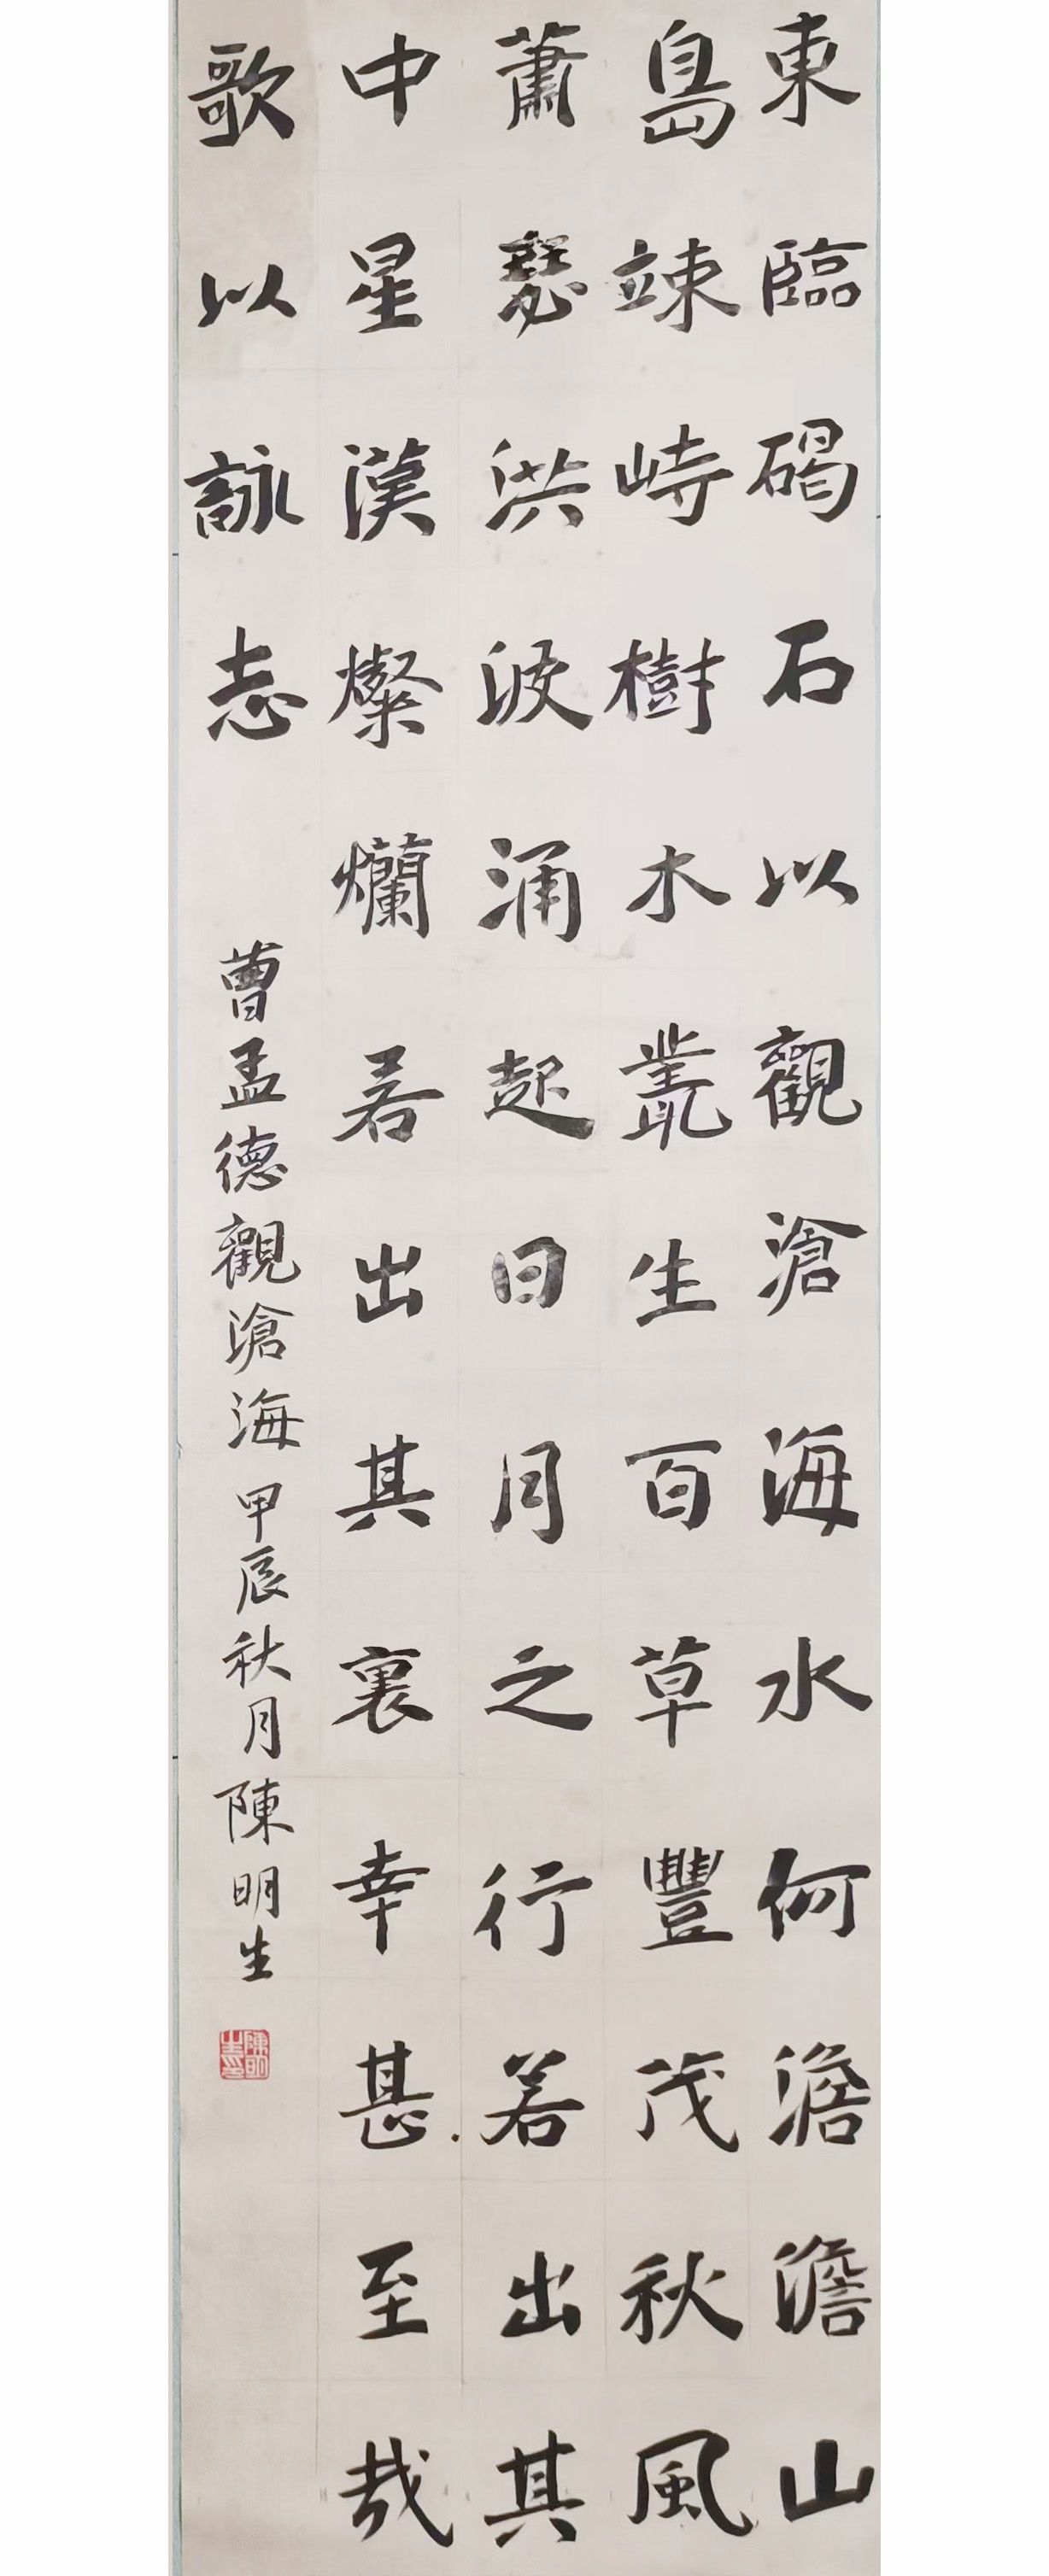 東臨碣石以觀滄海水何澹澹山
島竦峙樹木叢生百草豐茂秋風
蕭瑟洪波涌起日月之行若出其
中星漢燦爛若出其裏幸甚至哉
歌以詠志
曹孟德觀滄海甲辰秋月陳明生
陳明生印